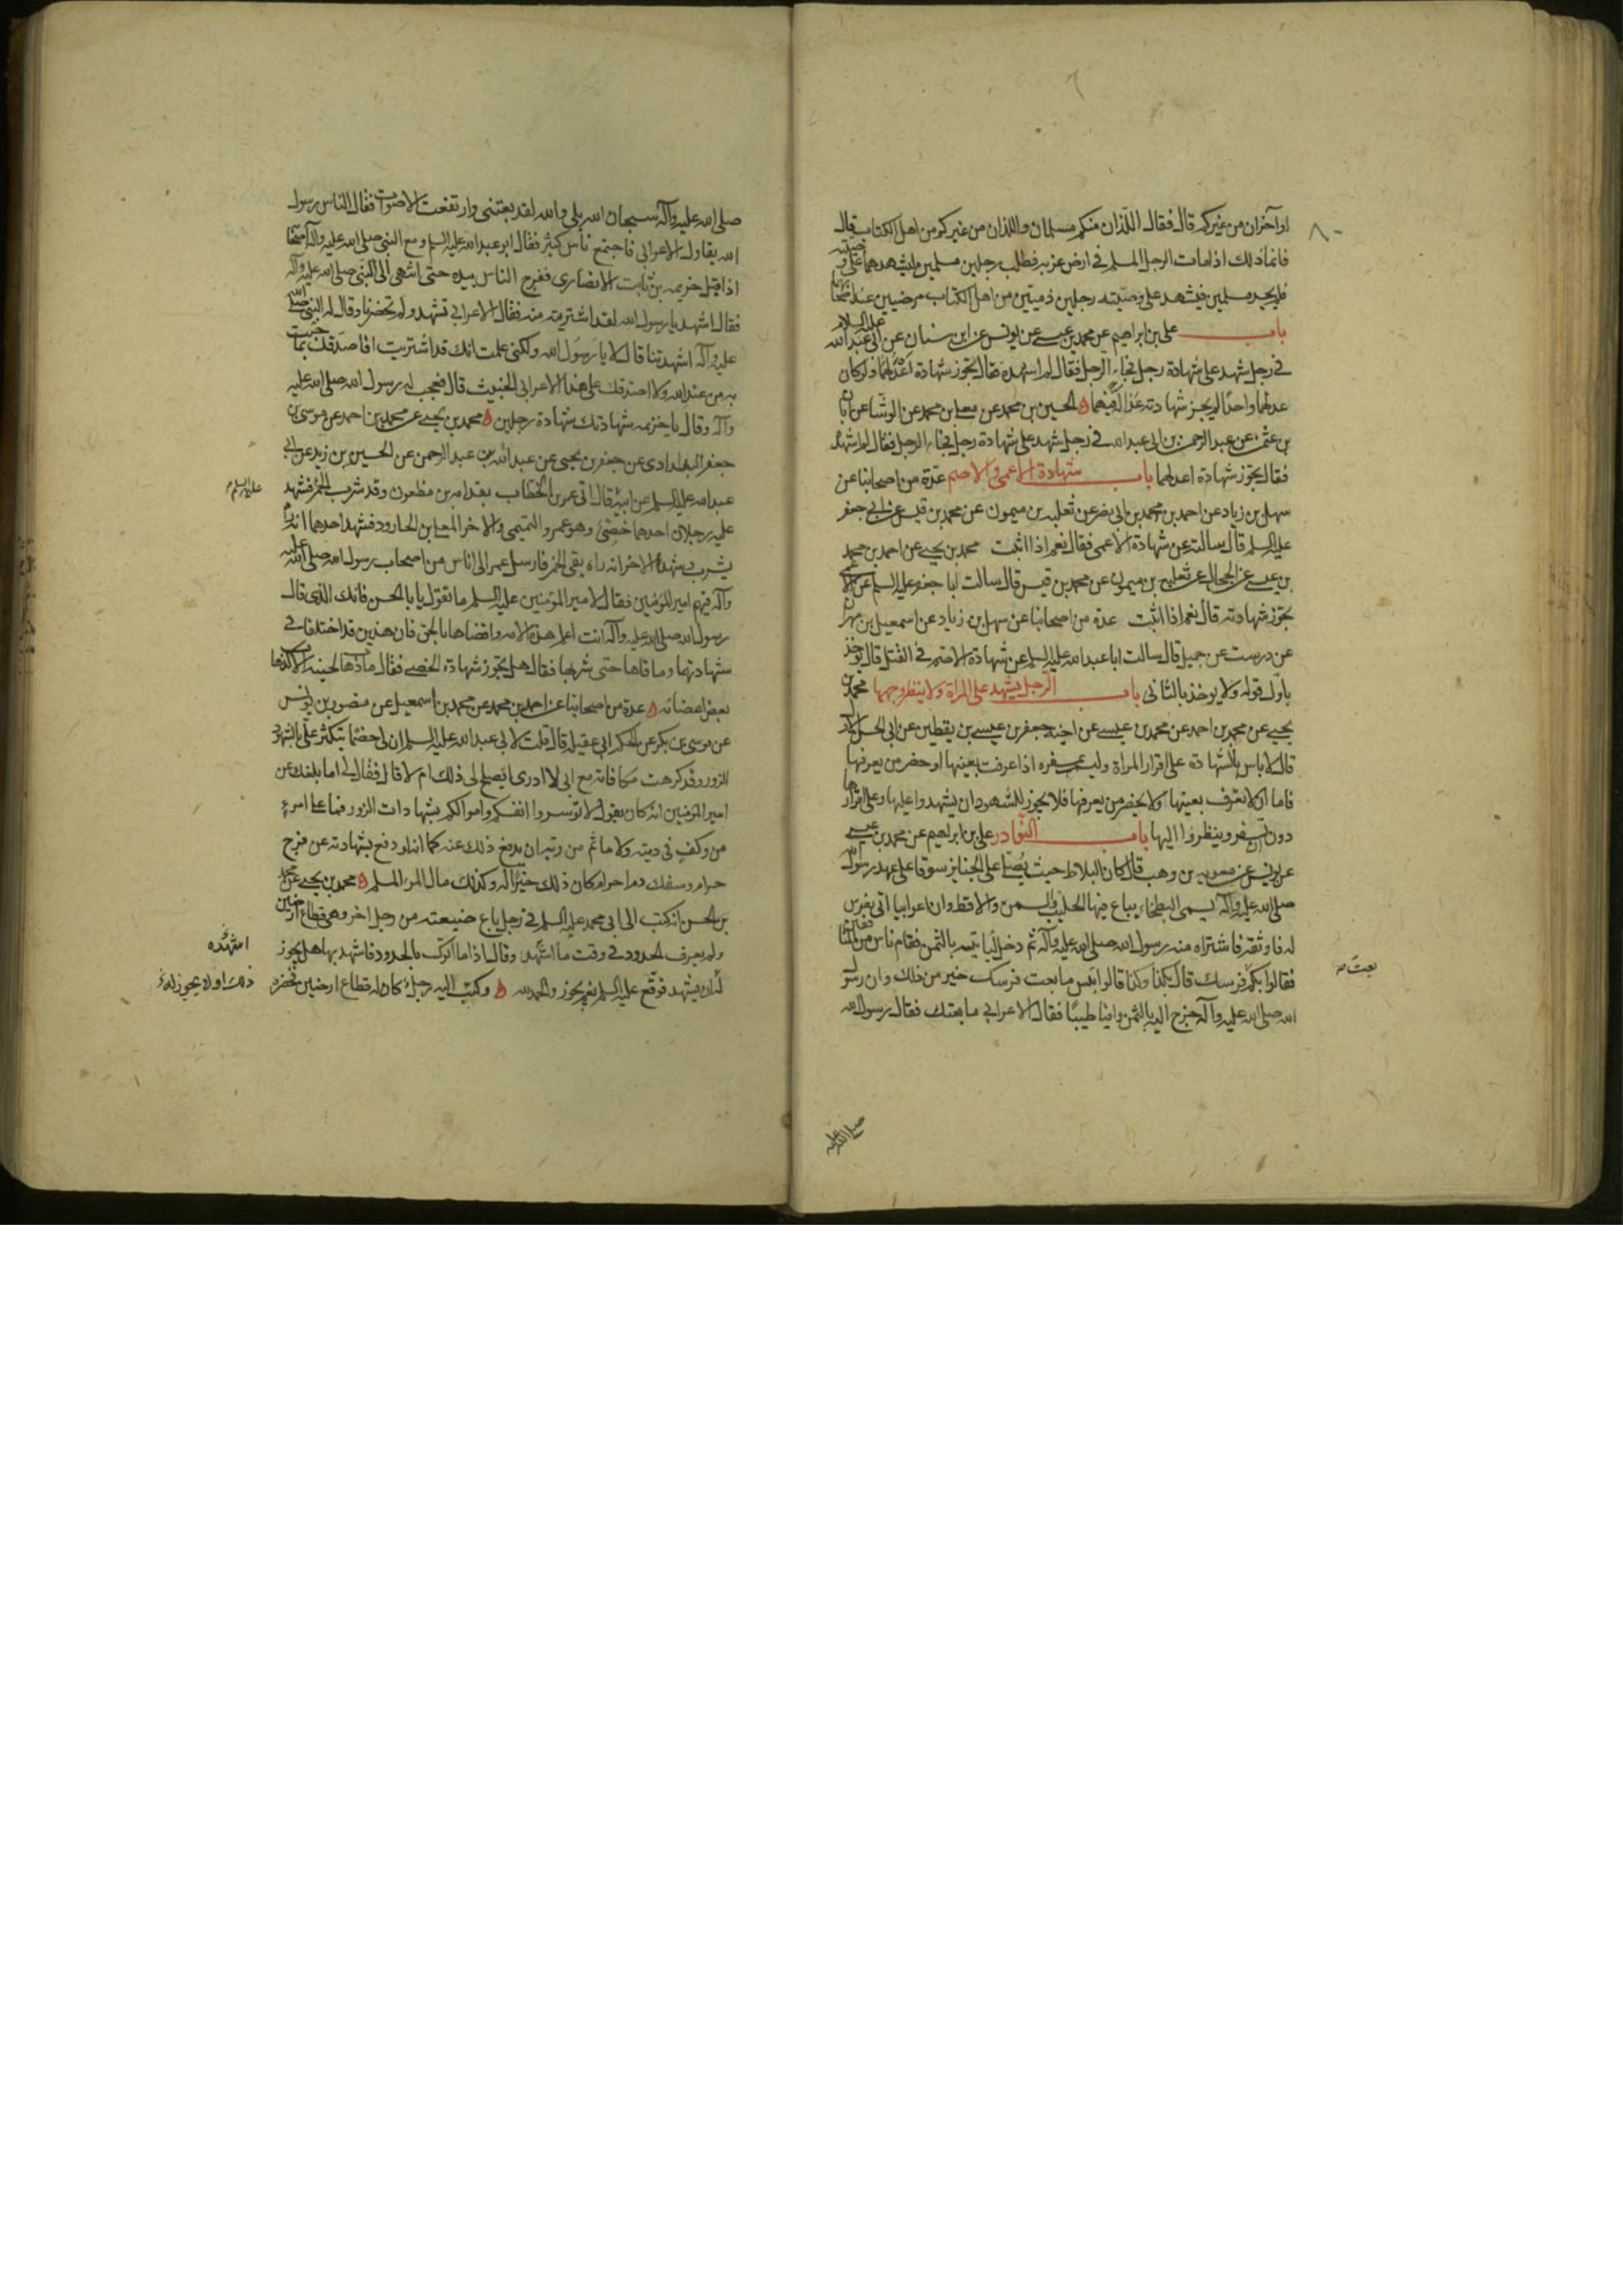 او آخران من غيركم قال فقال اللذان منكم مسلمان واللذان من غيركم من اهل الكتاب قال
فانما ذلك اذا مات الرجل المسلم في ارض غربة فطلب رجلين مسلمين ليشهدهما على وصيته
فلم يجد مسلمين فيشهد على وصيته رجلين ذميين من اهل الكتاب مرضيين عند اصحابهما
باب على بن ابراهيم عن محمد بن عيسى عن يونس عن ابن سنان عن ابى عبد الله عليه السلام
في رجل شهد على شهادة رجل فجاء الرجل فقال لم اشهده فقال يجوز شهادة اعدلهما ولو كان
عدلهما واحدا لم يجز شهادته عدالة فيهما الحسين بن محمد عن معلى بن محمد عن الوشا عن ابان
بن عثمن عن عبد الرحمن بن ابى عبد الله في رجل شهد على شهادة رجل فجاء الرجل فقال لم اشهده
فقال يجوز شهادة اعدلهما باب شهادة الاعمى والاصم عدة من اصحابنا عن
سهل بن زياد عن احمد بن محمد بن ابى نصر عن ثعلبة بن ميمون عن محمد بن قيس عن ابى جعفر
عليه السلم قال سالته عن شهادة الاعمى فقال نعم اذا اثبت محمد بن يحيى عن احمد بن محمد
بن عيسى عن الحجال عن ثعلبة بن ميمون عن محمد بن قيس قال سالت ابا جعفر عليه السلم عن الاعمى
يجوز شهادته قال نعم اذا اثبت عدة من اصحابنا عن سهل بن زياد عن اسمعيل بن مهران
عن درست عن جميل قال سالت ابا عبد الله عليه السلم عن شهادة الاصم في القتل قال يوخذ
باول قوله ولا يوخذ بالثانى باب الرجل يشهد على المراة ولا ينظر وجهها محمد بن
يحيى عن محمد بن احمد عن محمد بن عيسى عن اخيه جعفر بن عيسى بن يقطين عن ابى الحسن الاول
قال لا باس بالشهادة على اقرار المراة وليست بمسفرة اذا عرفت بعينها او حضر من يعرفها
فاما ان لا تعرف بعينها ولا يحضر من يعرفها فلا يجوز للشهود ان يشهدوا عليها وعلى اقرارها
دون ان تسفر وينظروا اليها باب النوادر على بن ابراهيم عن محمد بن عيسى
عن يونس عن معوية بن وهب قال كان البلاط حيث يصلى على الجنايز سوقا على عهد رسول الله
صلى الله عليه وآله يسمى البطحاء يباع فيها الحليب والسمن والاقط وان اعرابيا اتى بفرس
له فاوثقه فاشتراه منه رسول الله صلى الله عليه وآله ثم دخل لياتيه بالثمن فقام ناس من المنافقين
فقالوا بكم فرسك قال بكذا وكذا قالوا بئس ما بعت فرسك خير من ذلك وان رسول
بعت
الله صلى الله عليه وآله خرج اليه بالثمن وافيا طيبا فقال الاعرابي ما بعتك فقال رسول الله
صلى الله عليه
صلى الله عليه وآله سبحان الله بلى والله لقد بعتنى وارتفعت الاصوات فقال الناس رسول
الله يقاول الاعرابى فاجتمع ناس كثير فقال ابو عبد الله عليه السلم ومع النبى صلى الله عليه وآله اصحابه
اذ اقبل خزيمة بن ثابت الانصارى ففرج الناس بيده حتى انتهى الى النبى صلى الله عليه وآله
فقال اشهد يا رسول الله لقد اشتريته منه فقال الاعرابى تشهد ولم تحضرنا وقال له النبى صلى الله
عليه وآله اشهدتنا قال لا يا رسول الله ولكنى علمت انك قد اشتريت افاصدقك بما جئت
به من عند الله ولا اصدقك على هذا الاعرابى الخبيث قال فعجب له رسول الله صلى الله عليه
وآله وقال يا خزيمة شهادتك شهادة رجلين محمد بن يحيى عن محمد بن احمد عن موسى بن
جعفر البغدادى عن جعفر بن يحيى عن عبد الله بن عبد الرحمن عن الحسين بن زيد عن ابى
عبد الله عليه السلم عن ابيه قال اتى عمر بن الخطاب بقدامة بن مظعون وقد شرب الخمر فشهد
عليه السلم
عليه رجلان احدهما خصى وهو عمرو التميمى والاخر المعلى بن الجارود فشهد احدهما انه راه
يشرب وشهد الاخر انه راه يقى الخمر فارسل عمر الى اناس من اصحاب رسول الله صلى الله عليه
وآله فيهم امير المومنين فقال لامير المؤمنين عليه السلم ما تقول يا با الحسن فانك الذى قال
رسول الله صلى الله عليه وآله انت اعلم هذه الامة واقضاها بالحق فان هذين قد اختلفا في
شهادتهما وما قاها حتى شربها فقال هل يجوز شهادة الخصى فقال ما ذهاب لحيته الا كذهاب
بعض اعضائه عدة من اصحابنا عن احمد بن محمد عن محمد بن اسمعيل عن منصور بن يونس
عن موسى بن بكر عن الحكم ابى عقيل قال قلت لابى عبد الله عليه السلم ان لى خصما يتكثر على بالشهود
الزور وقد كرهت مكافاته مع انى لا ادرى ايصلح لى ذلك ام لا قال فقال لى اما بلغك عن
امير المؤمنين انه كان يقول لا توسروا انفسكم واموالكم بشهادات الزور فما على امرء
من وكف في دينه ولا ماثم من ربه ان يدفع ذلك عنه كما انه لو دفع بشهادته عن فرج
حرام وسفك دم حرام كان ذلك خيرا له وكذلك مال المرء المسلم محمد بن يحيى عن محمد
بن الحسن انه كتب الى ابى محمد عليه السلم في رجل باع ضيعته من رجل اخر وهى قطاع ارضين
ولم يعرف الحدود في وقت ما اشهده وقال اذا ما اتوك بالحدود فاشهد بها هل يجوز
اشهده
له ان يشهد فوقع عليه السلم نعم يجوز والحمد لله وكتب اليه رجل كان له قطاع ارضين فحضره
ذلك او لا يجوز له